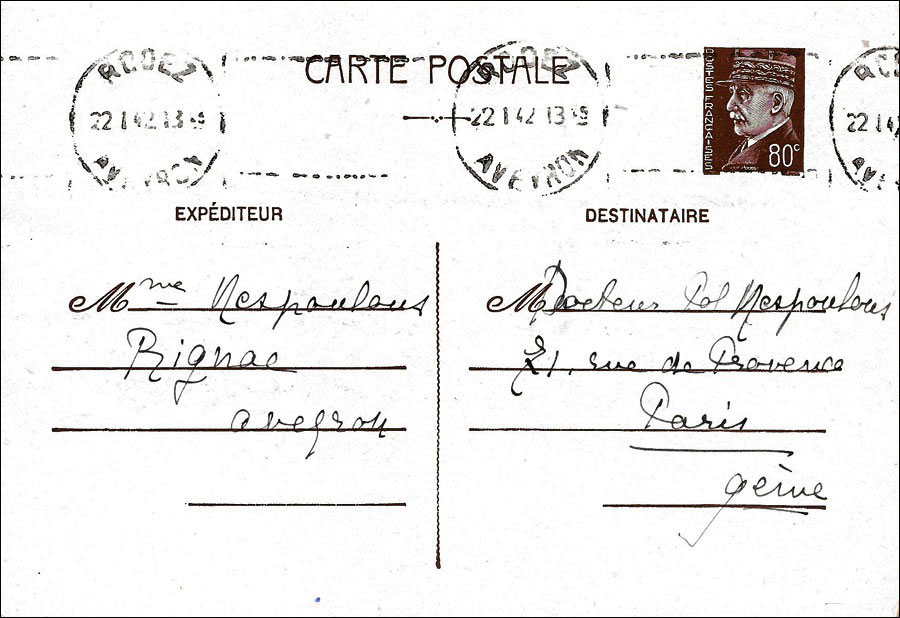 CARTE POSTALE
RODEZ
22 1 42 13
AVEYRON
RODEZ
22 1 42 13
AVEYRON
POSTES FRANÇAISES
80c
EXPÉDITEUR
Mme Nespoulous
Rignac
Aveyron
DESTINATAIRE
M Docteur Pol Nespoulous
21, rue de Provence
Paris
9ème